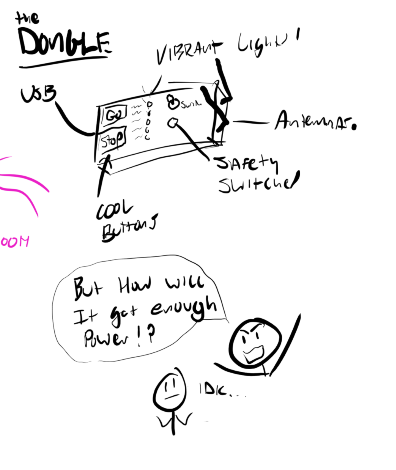 the
DONGLE
VIBRANT Lights!
USB
GO
STOP
Antenna.
SAFETY
Switches
COOL
Buttons
OOM
But How will
It get enough
Power!?
IDK...